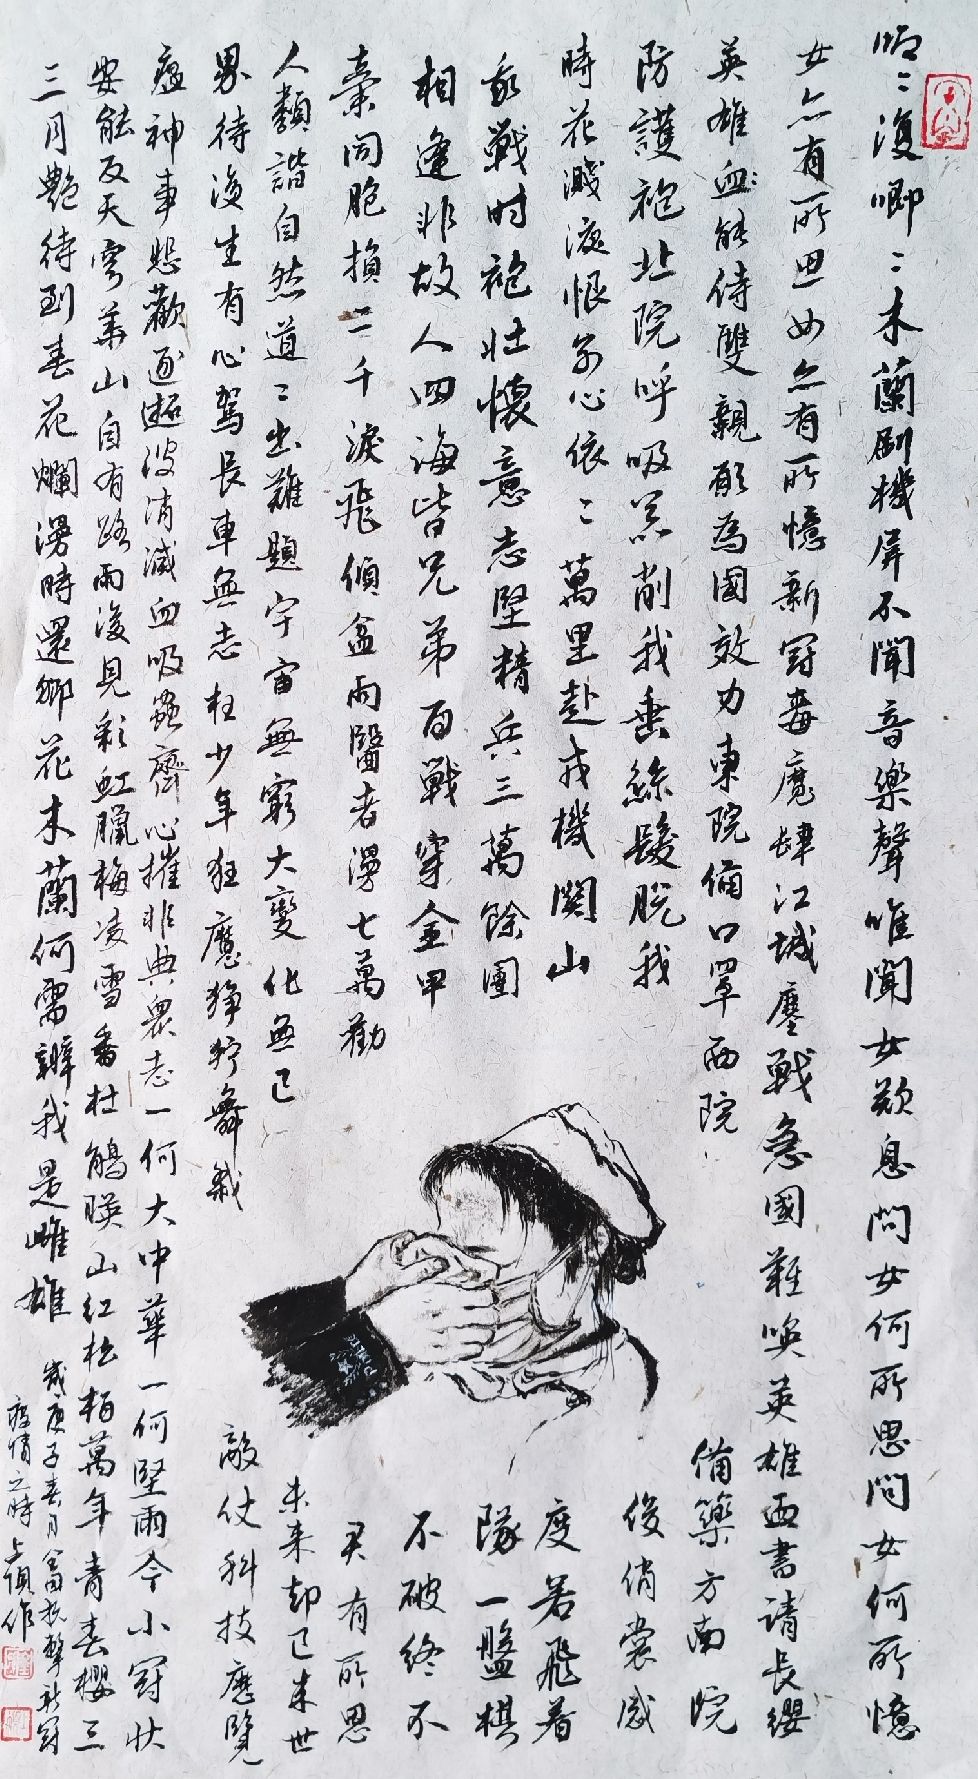 唧〻復唧〻木蘭刷機屏不聞音樂聲唯聞女歎息問女何所思問女何所憶
女亦有所思女亦有所憶新冠毒魔肆江城鏖戰急國難喚英雄西書請長纓
英雄血能侍雙親願為國效力東院備口罩西院備藥方南院
防護袍北院呼吸器削我垂絲髮脫我俊俏裳感
時花濺淚恨別心依〻萬里赴戎機關山度若飛着
我戰时袍壯懷意志堅精兵三萬餘團隊一盤棋
相逢非故人四海皆兄弟百戰穿金甲不破終不
棄同胞損三千淚飛傾盆雨醫者漫七萬勸君有所思
人類諧自然道〻出難題宇宙無窮大變化無已未来却已来世
界待後生有心駕長車無志枉少年狂魔猙獰舞裁敵仗科技應覽
瘟神事悲歡逐逝波消滅血吸蟲齊心摧非典衆志一何大中華一何堅雨今小冠狀
安能反天穹華山自有路雨後見彩虹臘梅凌雪香杜鵑映山红松栢萬年青春櫻三
三月艷待到春花爛漫時還鄉花木蘭何需辨我是雌雄
歲庚子春月全国抗擊新冠
疫情之時 作